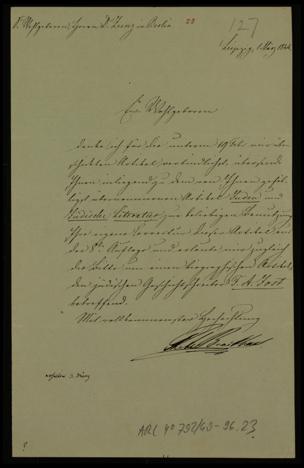 Sr. Wohlgeboren, Herrn Dr. Zunz in Berlin
23
127
Leipzig, 1 März 1844
Ew. Wohlgeboren
danke ich für die unterm 19
Artikel verbindlichst, übersende
Ihnen inliegend zu dem von Ihnen
Artikel Juden und
Jüdische Literatur zur beliebigen Benutzung
Ihre eigene Correctur dieses Artikels in
der 8n Auflage und erlaube mir zugleich
die Bitte um einen biographischen Artikel,
den jüdischen Geschichtschreiber J. M. Jost
betreffend.
Mit vollkommenster Hochachtung
erhalten 3. März
ARC 4° 792/G3-96.23